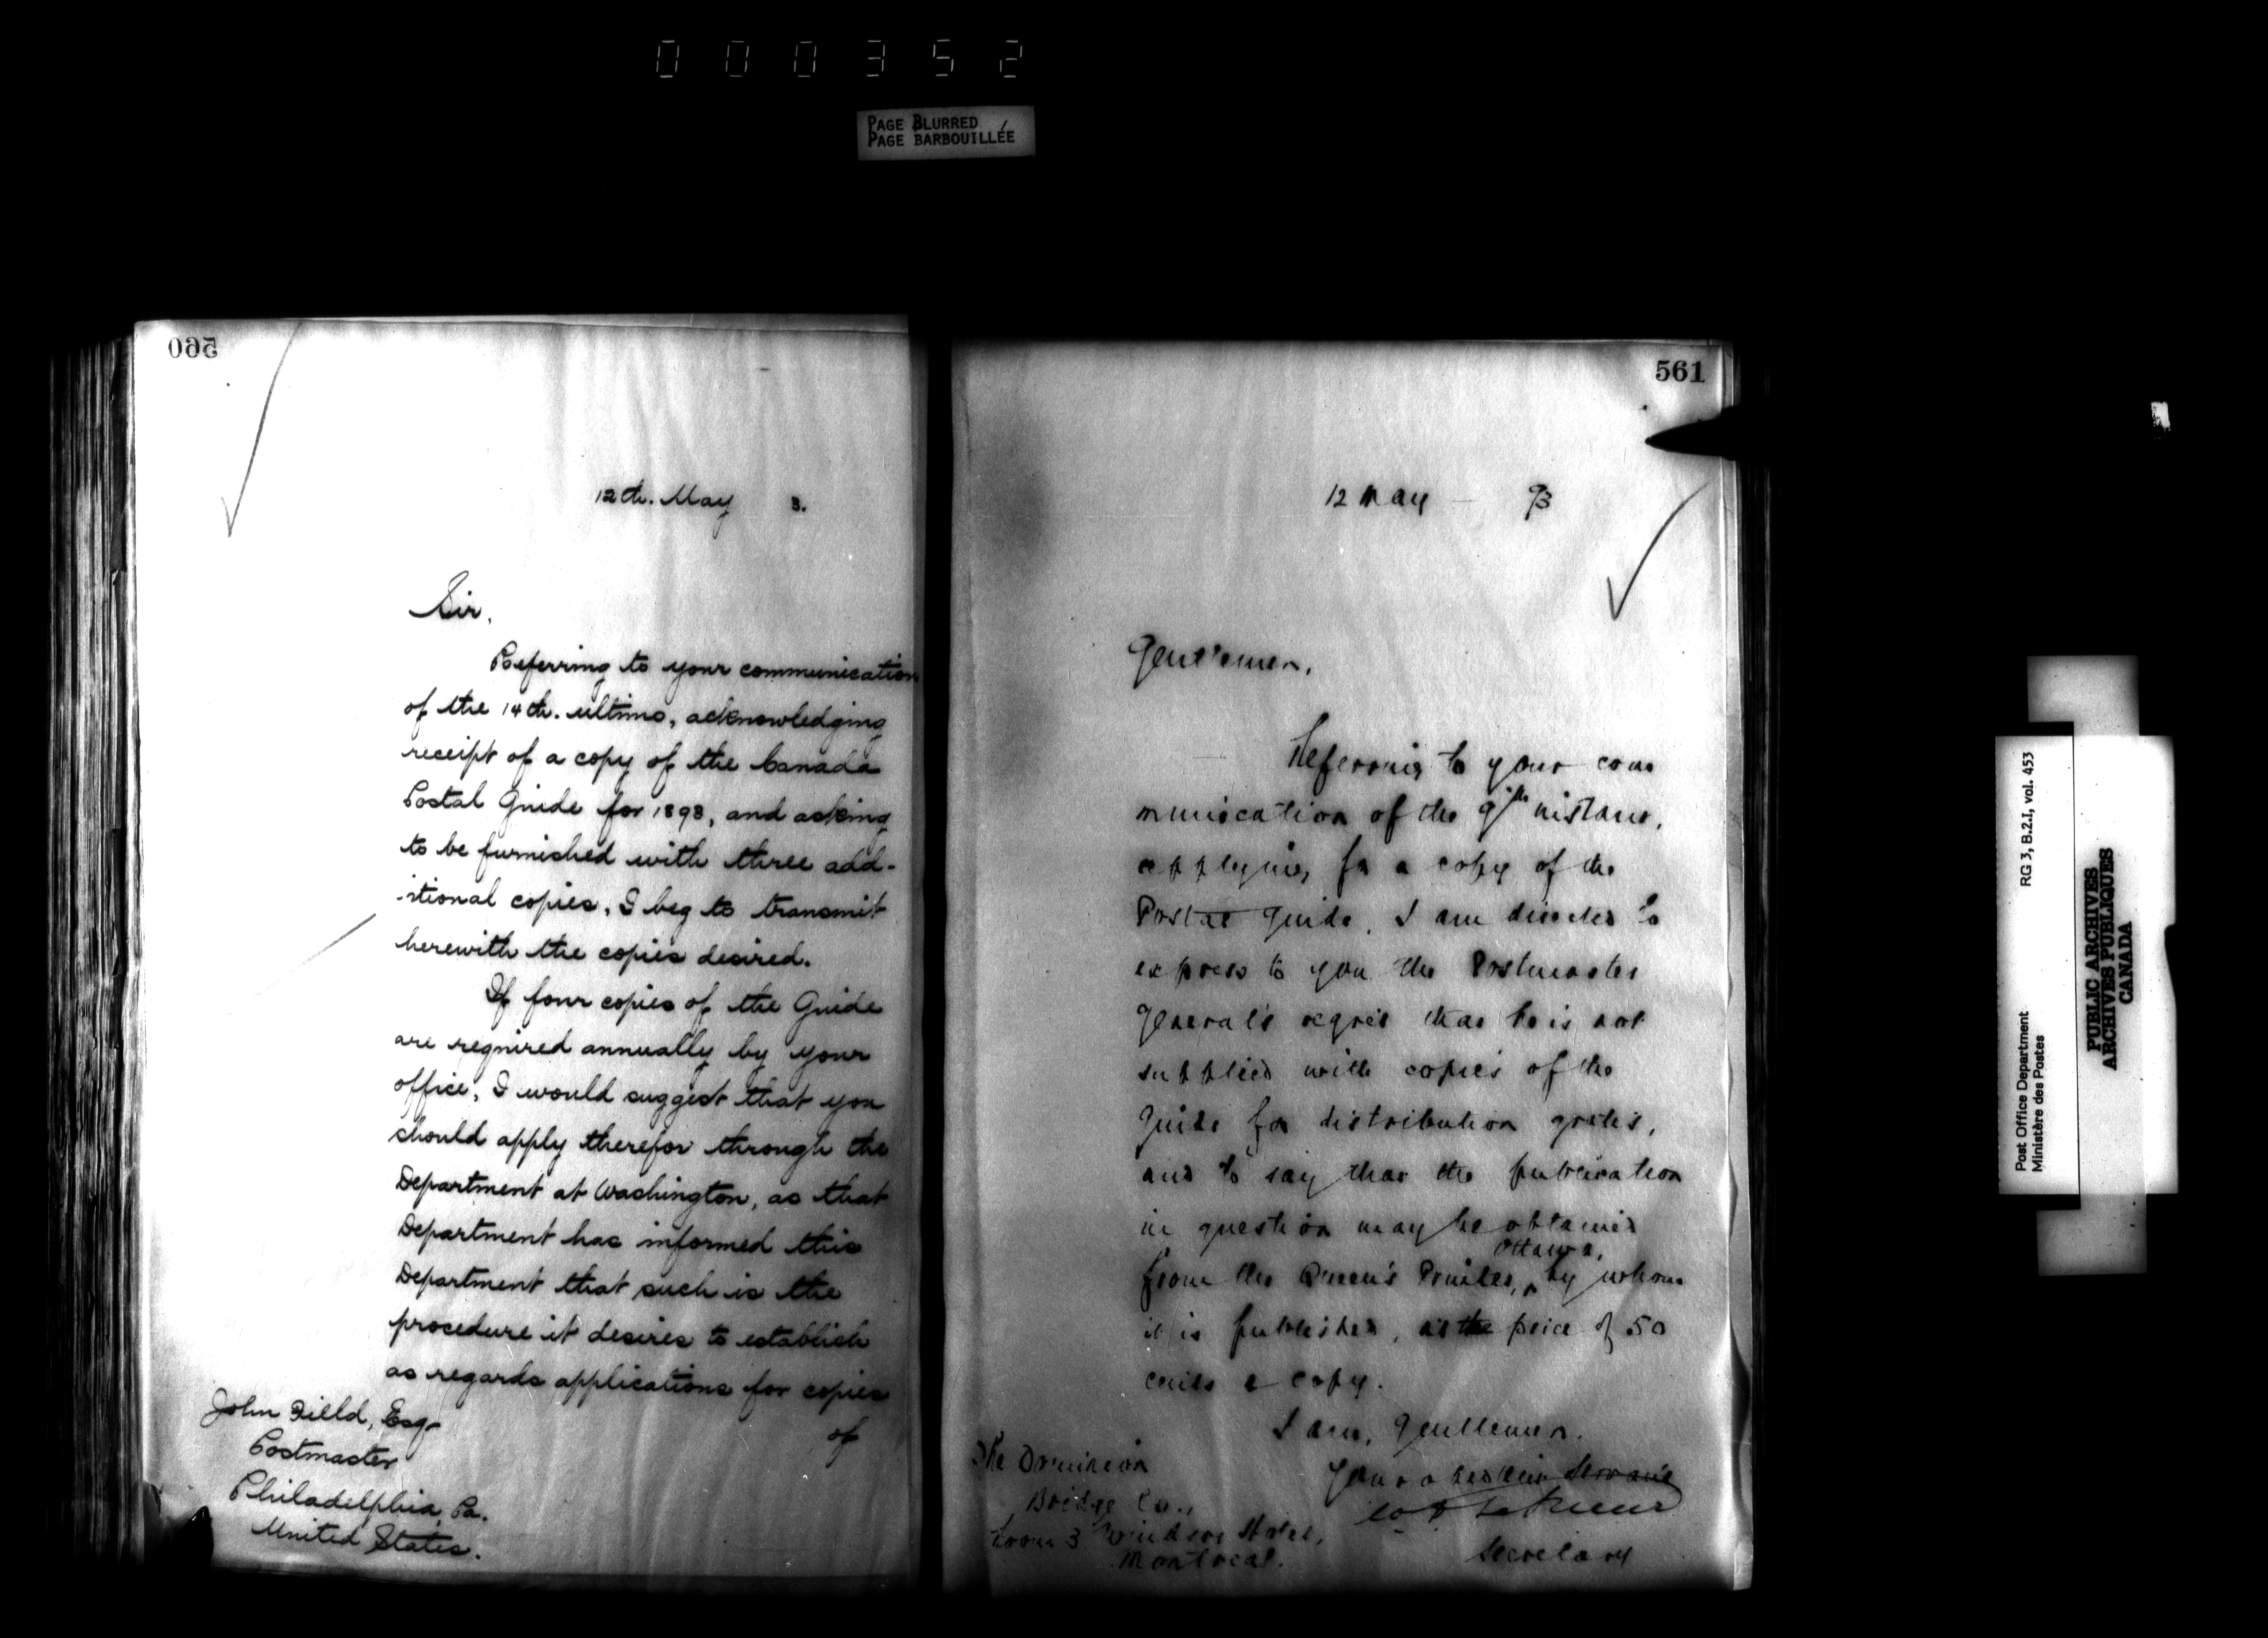 000352
PAGE BLURRED
PAGE BARBOUILLÉE
560
12th. May 3.
Sir,
Referring to your communication
of the 14th. ultimo, acknowledging
receipt of a copy of the Canada
Postal Guide for 1893, and asking
to be furnished with three add-
itional copies, I beg to transmit
herewith the copies desired.
If four copies of the Guide
are required annually by your
office, I would suggest that you
should apply therefor through the
Department at Washington, as that
Department has informed this
Department that such is the
procedure it desires to establish
as regards applications for copies
of
John Field, Esq.
Postmaster
Philadelphia, Pa.
United States.
561
12 May 93
Gentlemen,
Referring to your com
munication of the 9th instant,
applying for a copy of the
Postal Guide, I am directed to
express to you the Postmaster
General's regret that he is not
supplied with copies of the
Guide for distribution gratis,
and to say that the publication
in question may be obtained
Ottawa,
from the Queen's Printer, by whom
it is published, at the price of 50
cents a copy.
I am, Gentlemen,
Your obedient Servant
Secretary
The Dominion
Bridge Co.,
Room 3 Windsor Hotel,
Montreal.
Post Office Department
Ministère des Postes
RG 3, B.2.I, vol. 453
PUBLIC ARCHIVES
ARCHIVES PUBLIQUES
CANADA